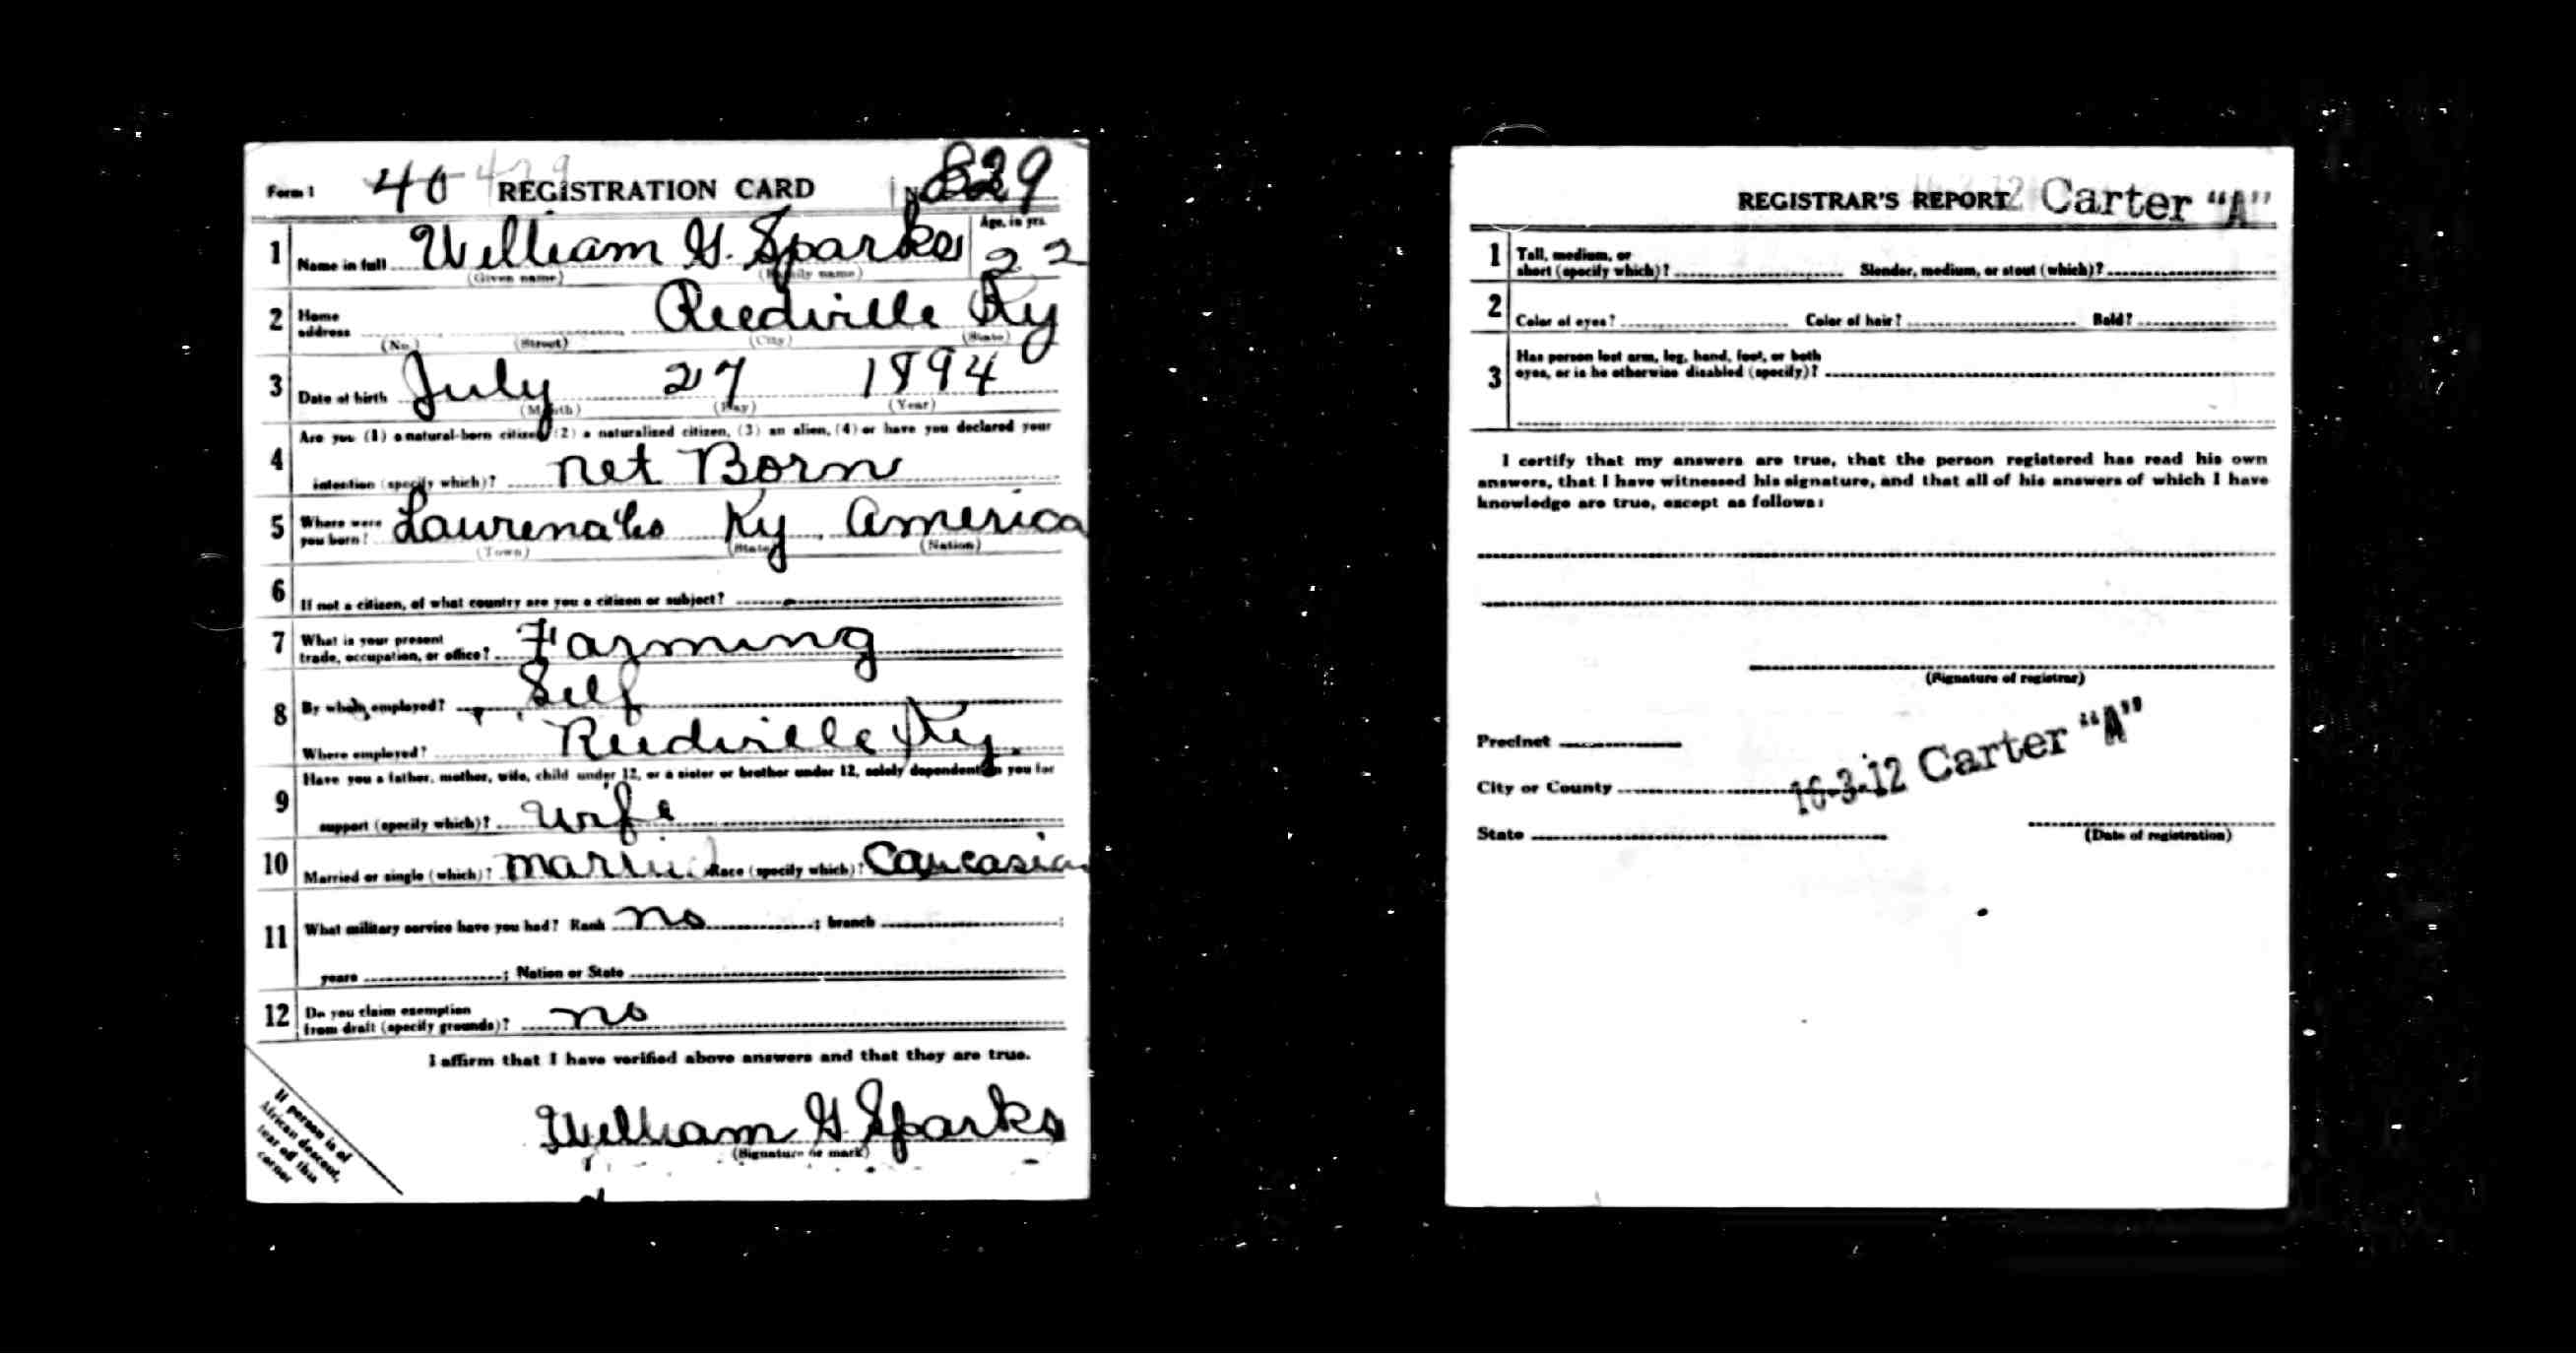 Form 1 40 429 REGISTRATION CARD No. 829
1 Name in full William G. Sparks Age, in yrs. 22
(Given name) (Family name)
2 Home address Reedville Ky
(No.) (Street) (City) (State)
3 Date of birth July 27 1894
(Month) (Day) (Year)
4 Are you (1) a natural-born citizen (2) a naturalized citizen, (3) an alien, (4) or have you declared your
intention (specify which)? net Born
5 Where were you born? Ky America
(Town) (State) (Nation)
6 If not a citizen, of what country are you a citizen or subject?
7 What is your present
trade, occupation, or office? Farming
8 By whom employed? Self
Where employed? Reedville Ky.
9 Have you a father, mother, wife, child under 12, or a sister or brother under 12, solely dependent on you for
support (specify which)? Wife
10 Married or single (which)? married Race (specify which)? Caucasian
11 What military service have you had? Rank no ; branch ;
years ; Nation or State
12 Do you claim exemption
from draft (specify grounds)? no
I affirm that I have verified above answers and that they are true.
William G Sparks
(Signature or mark)
If person is of
African descent,
tear off this
corner
REGISTRAR'S REPORT Carter "A"
1 Tall, medium, or
short (specify which)? Slender, medium, or stout (which)?
2 Color of eyes? Color of hair? Bald?
3 Has person lost arm, leg, hand, foot, or both
eyes, or is he otherwise disabled (specify)?
I certify that my answers are true, that the person registered has read his own
answers, that I have witnessed his signature, and that all of his answers of which I have
knowledge are true, except as follows:
(Signature of registrar)
Precinct
City or County 16-3-12 Carter "A"
State
(Date of registration)